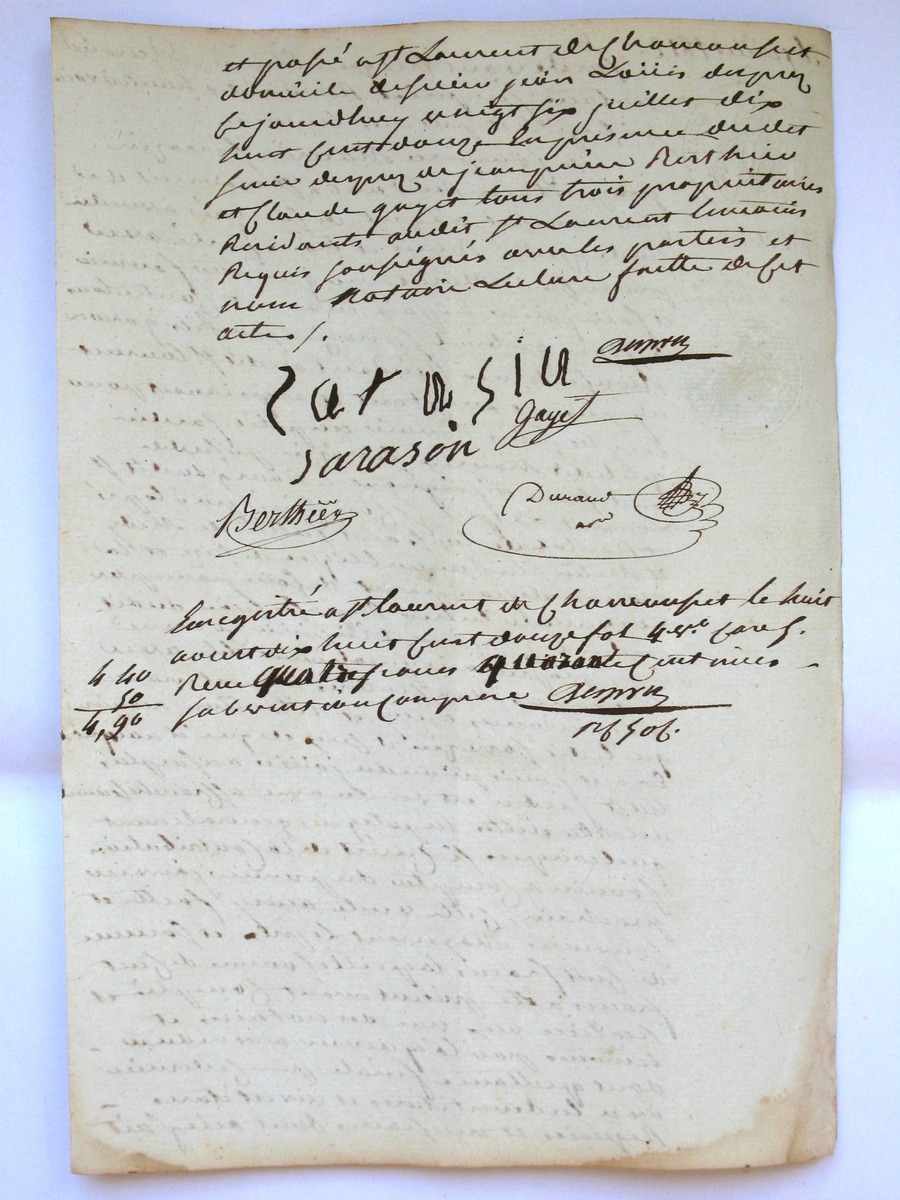 et passé a St Laurent de Chamousset
domicile de sieur jean Louis desprez
cejourdhuy vingt six juillet dix
huit cent douze En présence dudit
sieur desprez de jean pierre Berthier
et Claude gayet tous trois propriétaires
Residants audit St Laurent temoins
Requis soussignés avec les parties et
nous Notaire Lecture faitte de cet
acte /.
Desprez
gayet
sarasin
Berthier
Durand
nre
Enregistré a St laurent de Chamousset le huit
aoust dix huit Cent douze fol 4 vo Case 5.
Recu quatre francs quarante Centimes
4 40
50
4,90
subvention Comprise Desprez